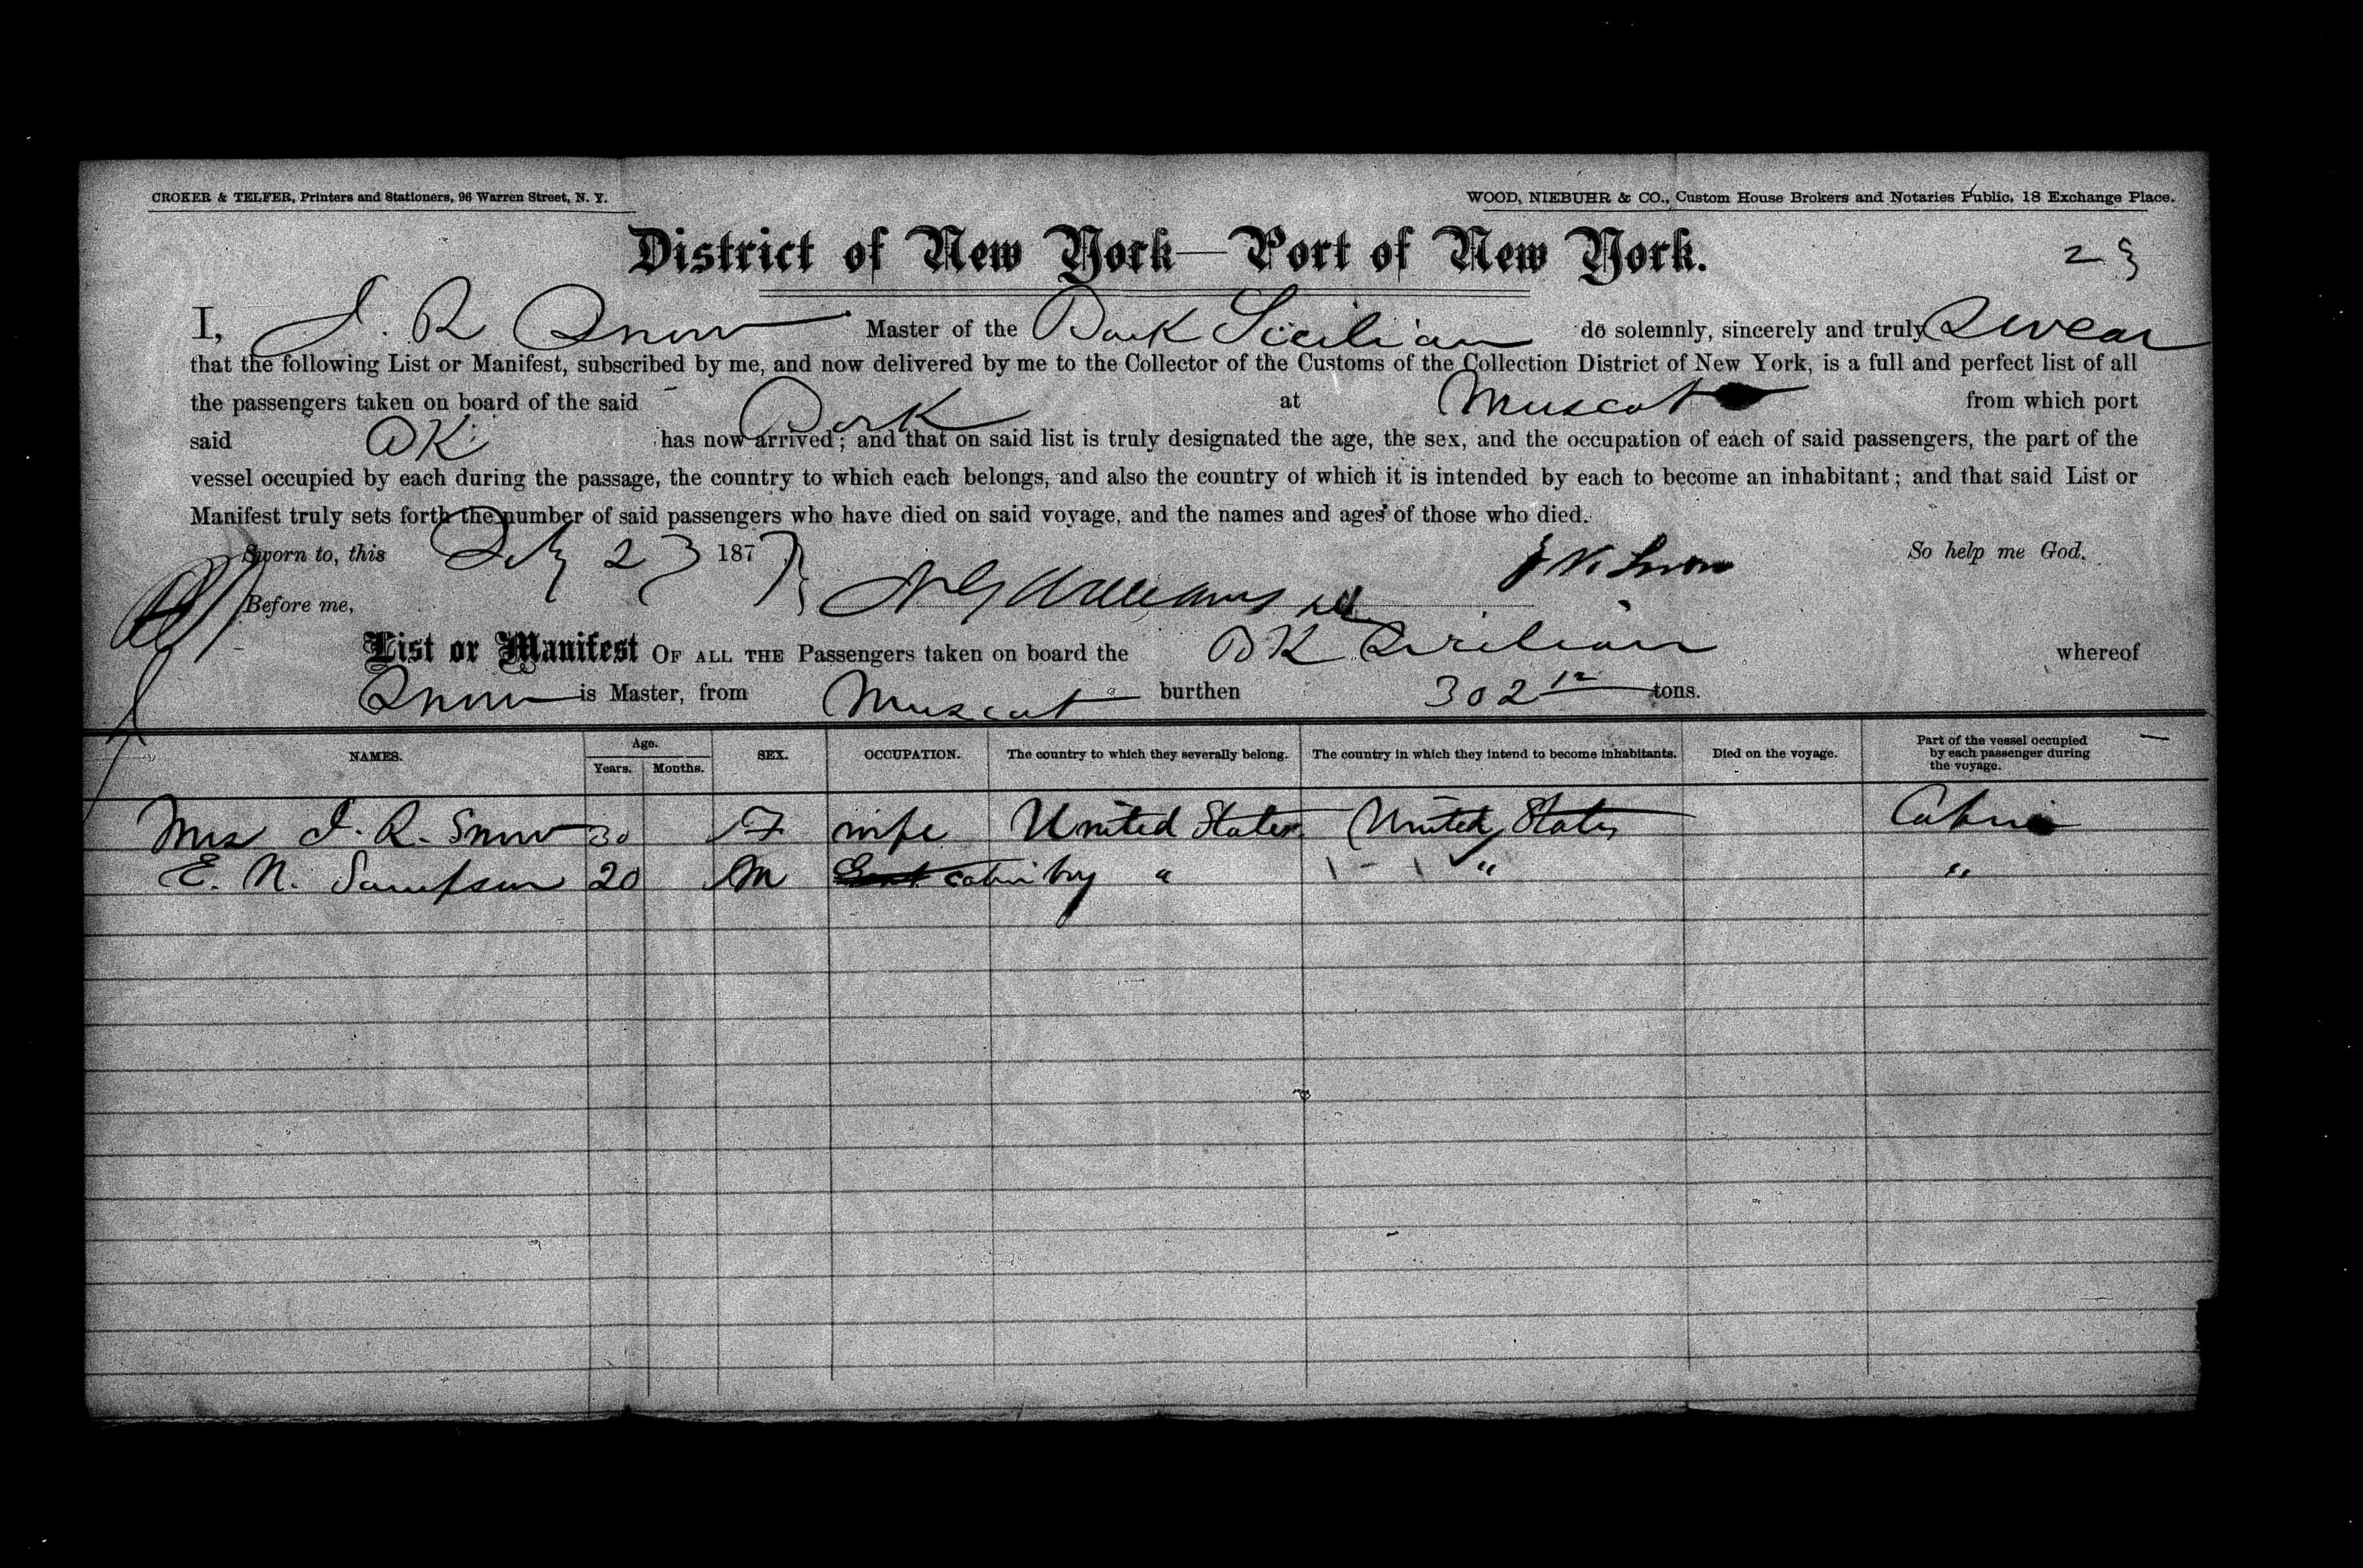 CROKER & TELFER, Printers and Stationers, 96 Warren Street, N. Y.
WOOD, NIEBUHR & CO., Custom House Brokers and Notaries Public, 18 Exchange Place.
District of New York—Port of New York.
23
I, J. R Snow Master of the Bark Sicilian do solemnly, sincerely and truly Swear
that the following List or Manifest, subscribed by me, and now delivered by me to the Collector of the Customs of the Collection District of New York, is a full and perfect list of all
the passengers taken on board of the said Bark at Muscat from which port
said BK has now arrived; and that on said list is truly designated the age, the sex, and the occupation of each of said passengers, the part of the
vessel occupied by each during the passage, the country to which each belongs, and also the country of which it is intended by each to become an inhabitant; and that said List or
Manifest truly sets forth the number of said passengers who have died on said voyage, and the names and ages of those who died.
Sworn to, this 23 187 J R Snow So help me God.
Before me, Williams
List or Manifest OF ALL THE Passengers taken on board the BK Sicilian whereof
Snow is Master, from Muscat burthen 302 12 tons.
NAMES. Age. Years. Months. SEX. OCCUPATION. The country to which they severally belong. The country in which they intend to become inhabitants. Died on the voyage. Part of the vessel occupied by each passenger during the voyage.
Mrs J. R. Snow 30 F wife United States United States Cabin
E. N. Sampson 20 M cabin boy " " "